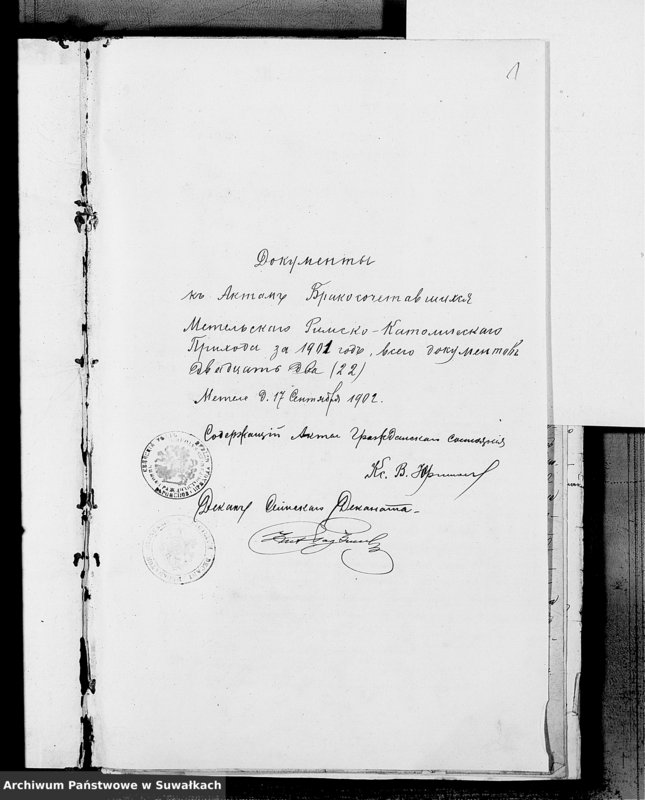 1
Документы
къ Актамъ Бракосочетавшихся
Метельскаго Римско-Католическаго
Прихода за 1901 годъ, всего документовъ
двадцать два (22)
Метеле д. 17 Сентября 1902.
Содержащій Акты Гражданскаго состоянія
Кс. В.
Деканъ Сейнскаго Деканата
Archiwum Państwowe w Suwałkach